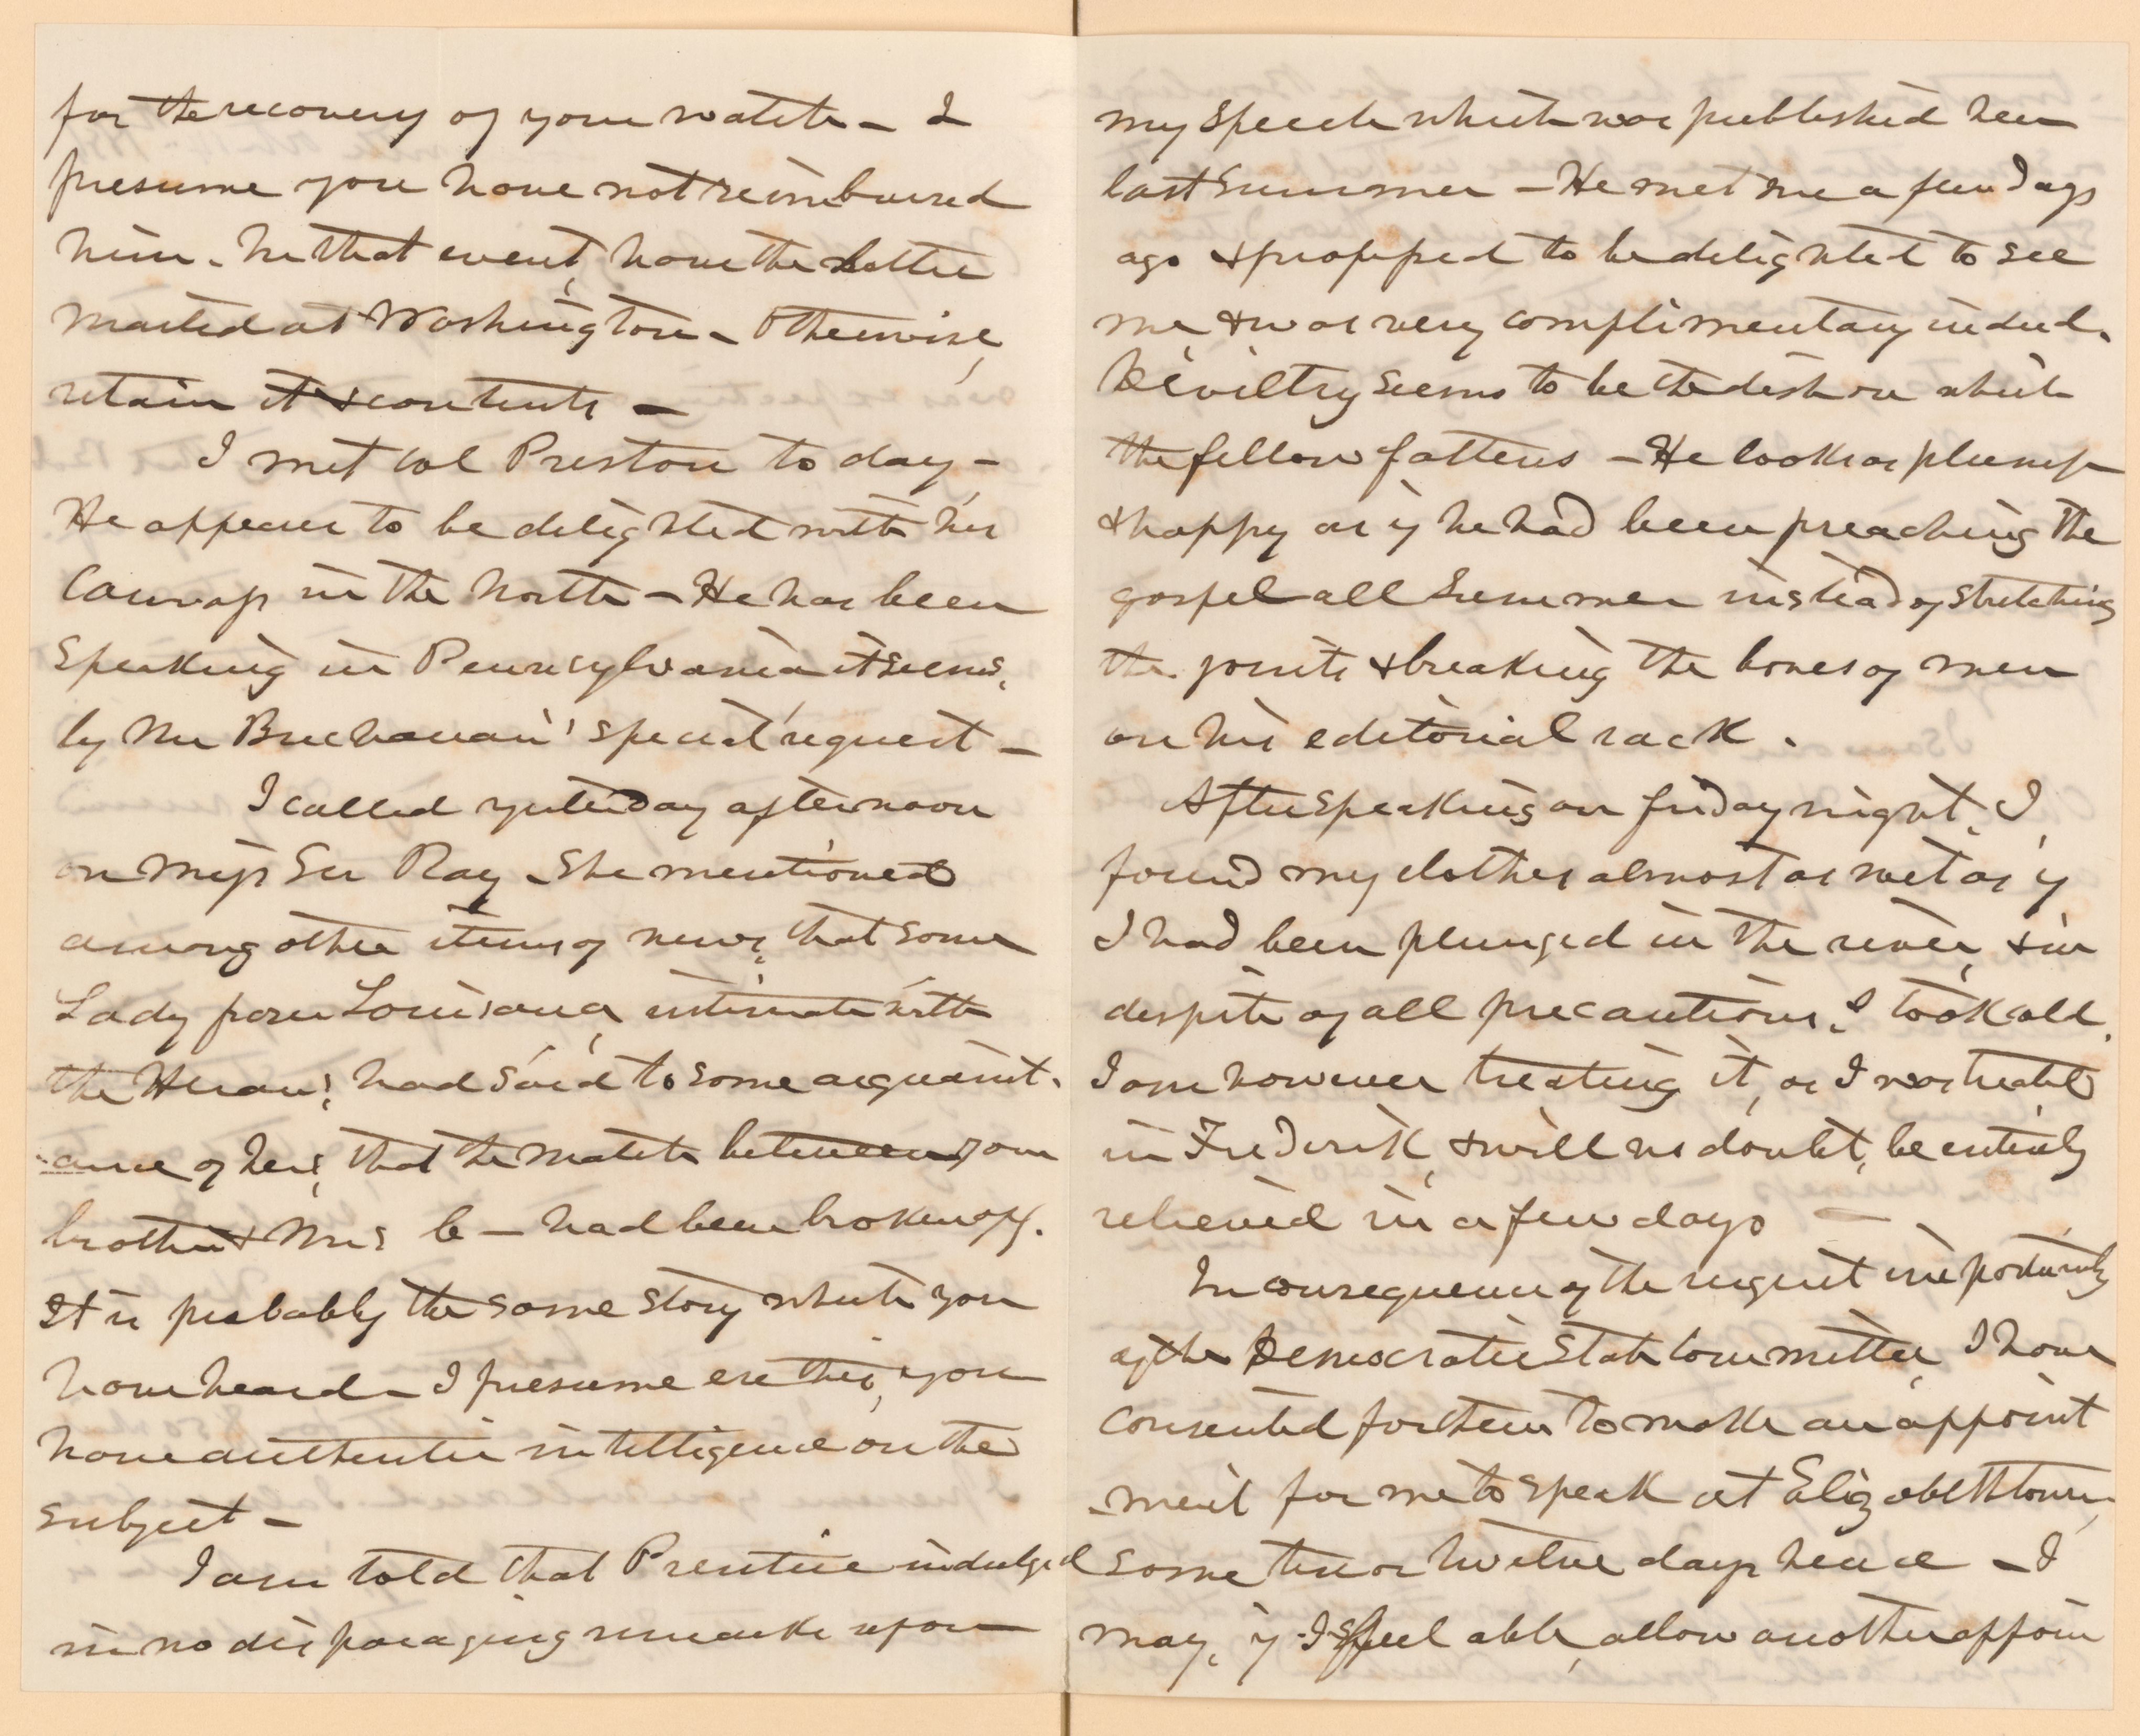 for the recovery of your watch – I
presume you have not reimbursed
him. In that event, have the letter
mailed at Washington – Otherwise,
retain it & contents –
I met Col Preston to day –
He appears to be delighted with his
Canvass in the North – He has been
speaking in Pennsylvania it seems,
by Mr Buchanan's special request –
I called yesterday afternoon
on Miss Sue Ray – She mentioned
among other items of news, that some
Lady from Louisiana, intimate with
the had said to some acquaint-
ance of hers, that the match between your
brother & Mrs C – had been broken off.
It is probably the same story which you
have heard – I presume ere this, you
have authentic intelligence on the
subject –
I am told that Prentice indulged
in no disparaging remarks upon
my speech which was published here
last summer – He met me a few days
ago & professed to be delighted to see
me, & was very complimentary indeed.
Deviltry seems to be the dish on which
the fellow fattens – He looks as plump
& happy as if he had been preaching the
gospel all Summer instead of stretching
the joints & breaking the bones of men
on his editorial rack.
After speaking on friday night, I,
found my clothes almost as wet as if
I had been plunged in the river, & in
despite of all precautions, I took cold.
I am however treating it, as I was treated
in Frederick, & will no doubt, be entirely
relieved in a few days –
In consequence of the urgent importunity
of the Democratic State Committee, I have
consented for them to make an appoint
-ment for me to speak at Elizabethtown,
some ten or twelve days hence – I
may, if I feel able, allow another appoin